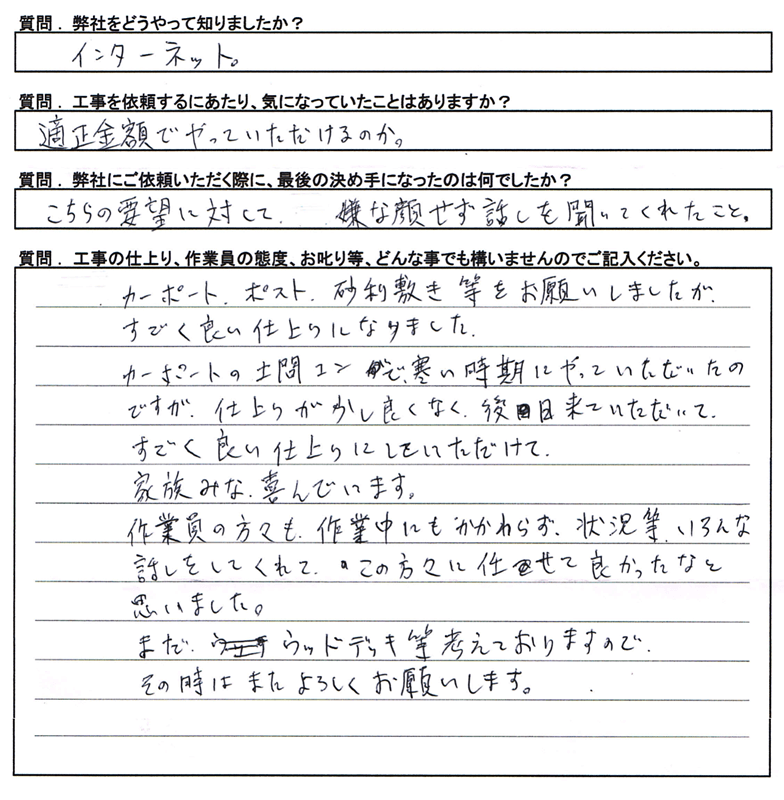 質問．弊社をどうやって知りましたか？
インターネット。
質問．工事を依頼するにあたり、気になっていたことはありますか？
適正金額でやっていただけるのか。
質問．弊社にご依頼いただく際に、最後の決め手になったのは何でしたか？
こちらの要望に対して、嫌な顔せず話しを聞いてくれたこと。
質問．工事の仕上り、作業員の態度、お叱り等、どんな事でも構いませんのでご記入ください。
カーポート、ポスト、砂利敷き等をお願いしましたが、
すごく良い仕上りになりました。
カーポートの土間コンで、寒い時期にやっていただいたの
ですが、仕上りが少し良くなく、後日来ていただいて、
すごく良い仕上りにしていただけて、
家族みな、喜んでいます。
作業員の方々も、作業中にもかかわらず、状況等、いろんな
話しをしてくれて、この方々に任せて良かったなと
思いました。
まだ、ウッドデッキ等考えておりますので、
その時はまたよろしくお願いします。